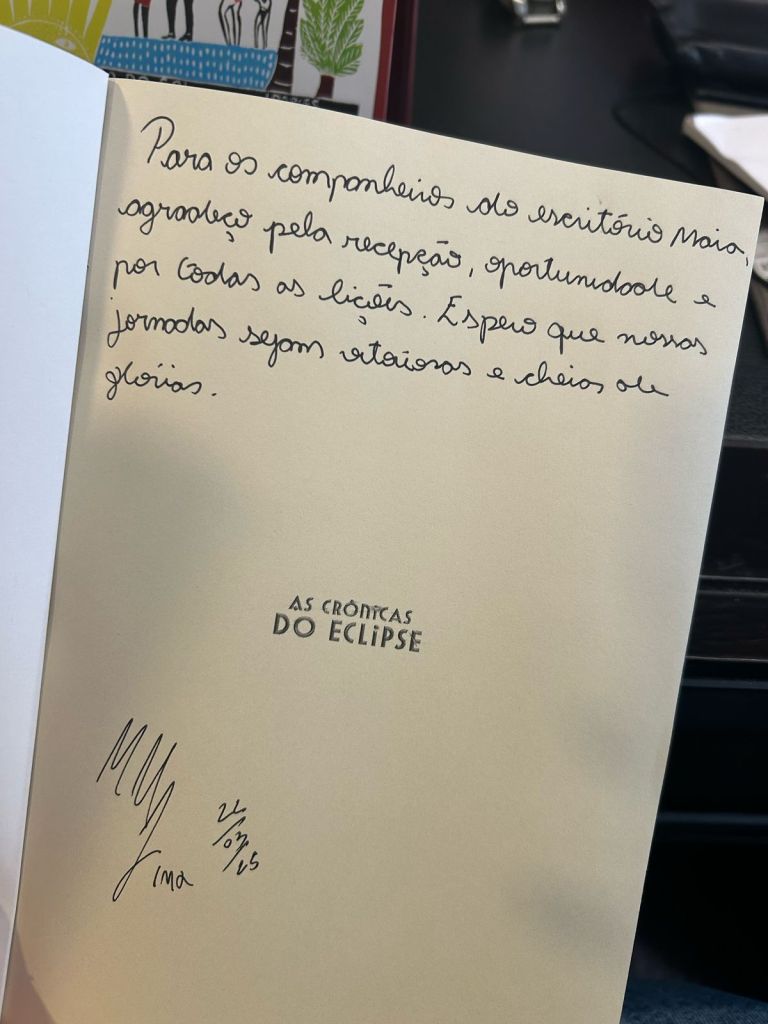 Para os companheiros do escritório Maia,
agradeço pela recepção, oportunidade e
por todas as lições. Espero que nossas
jornadas sejam vitoriosas e cheias de
glórias.
AS CRÔNICAS
DO ECLIPSE
Lima